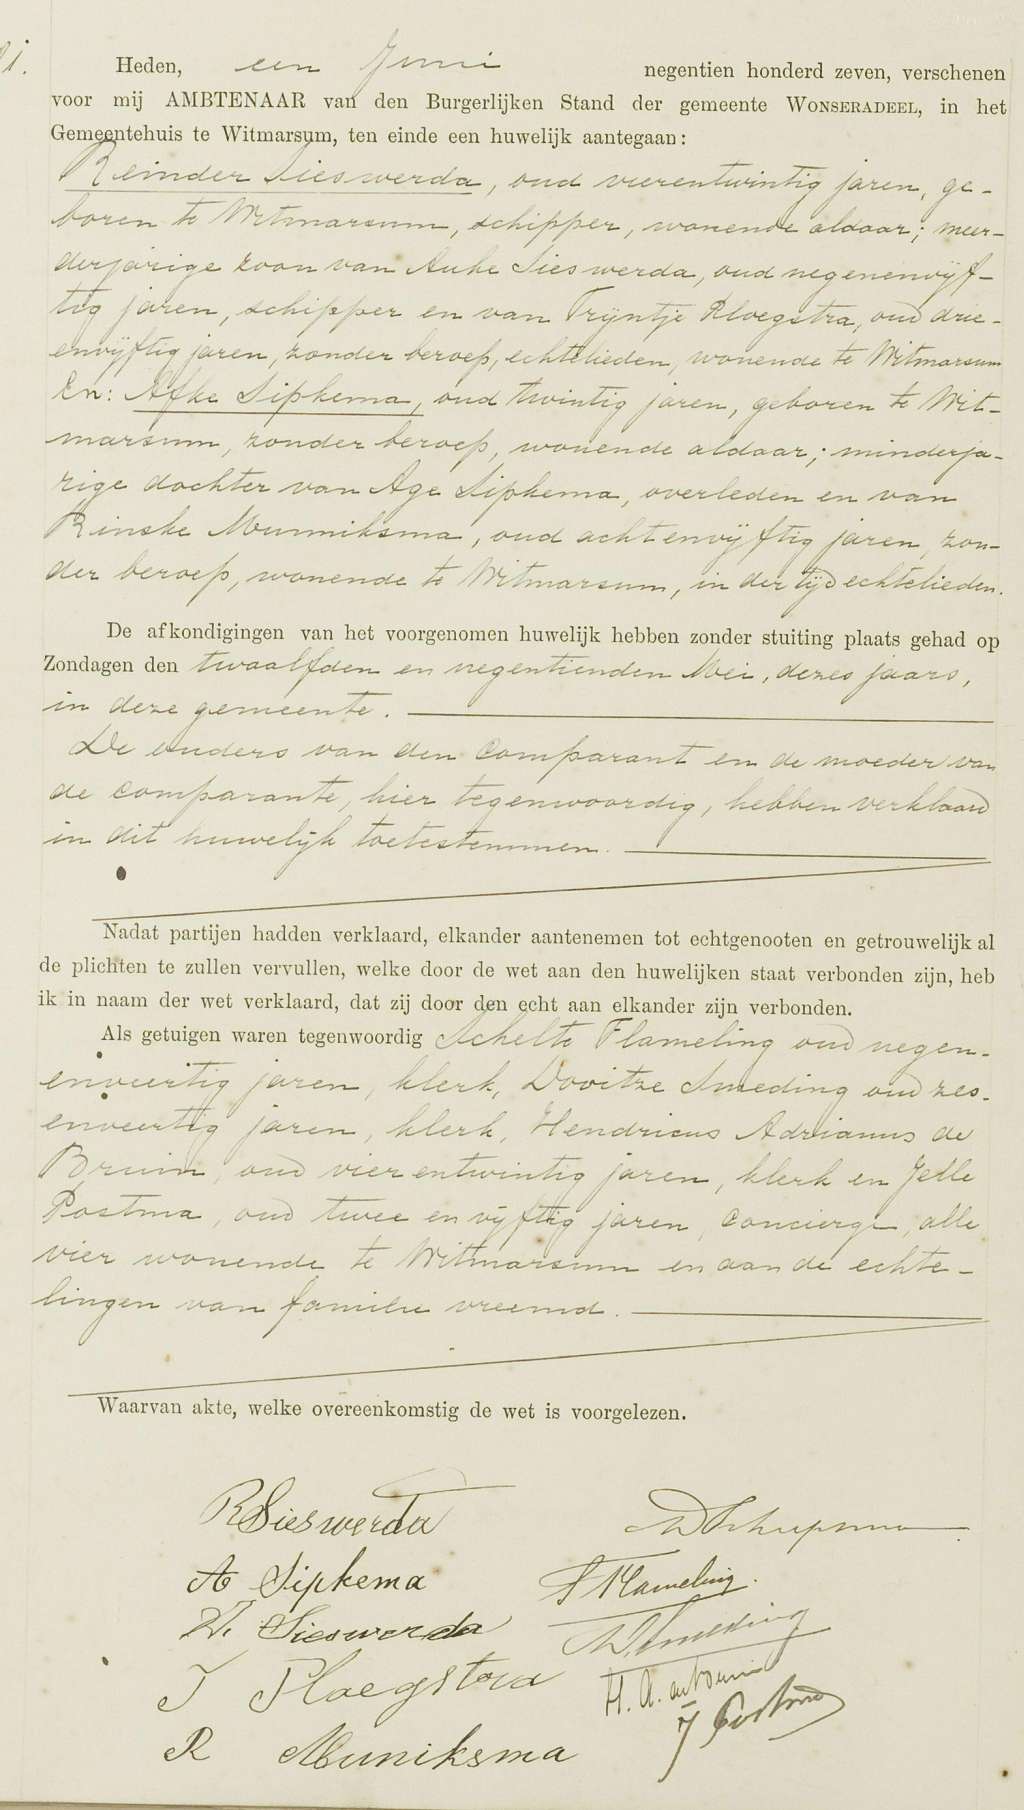 Heden, een Juni negentien honderd zeven, verschenen
voor mij AMBTENAAR van den Burgerlijken Stand der gemeente WONSERADEEL, in het
Gemeentehuis te Witmarsum, ten einde een huwelijk aantegaan:
Reinder Sieswerda, oud vierentwintig jaren, ge-
boren te Witmarsum, schipper, wonende aldaar; meer-
derjarige zoon van Auke Sieswerda, oud negenenvijf-
tig jaren, schipper en van Trijntje Ploegstra, oud drie-
envijftig jaren, zonder beroep, echtelieden, wonende te Witmarsum
En: Afke Sipkema, oud twintig jaren, geboren te Wit-
marsum, zonder beroep, wonende aldaar; minderja-
rige dochter van Age Sipkema, overleden en van
Rinske Munniksma, oud achtenvijftig jaren, zon-
der beroep, wonende te Witmarsum, in der tijd echtelieden.
De afkondigingen van het voorgenomen huwelijk hebben zonder stuiting plaats gehad op
Zondagen den twaalfden en negentienden Mei, dezes jaars,
in deze gemeente.
De ouders van den comparant en de moeder van
de comparante, hier tegenwoordig, hebben verklaard
in dit huwelijk toetestemmen.
Nadat partijen hadden verklaard, elkander aantenemen tot echtgenooten en getrouwelijk al
de plichten te zullen vervullen, welke door de wet aan den huwelijken staat verbonden zijn, heb
ik in naam der wet verklaard, dat zij door den echt aan elkander zijn verbonden.
Als getuigen waren tegenwoordig Schelte Flameling oud negen-
enveertig jaren, klerk, Dooitze Smeding oud zes-
enveertig jaren, klerk, Hendricus Adrianus de
Bruin, oud vierentwintig jaren, klerk en Jelle
Postma, oud twee en vijftig jaren, concierge, alle
vier wonende te Witmarsum en aan de echte-
lingen van familie vreemd.
Waarvan akte, welke overeenkomstig de wet is voorgelezen.
RSieswerda
A Sipkema
Sieswerda
T Ploegstra
R Muniksma
S Flameling.
D Smeding
H. A. de Bruin
J Postma